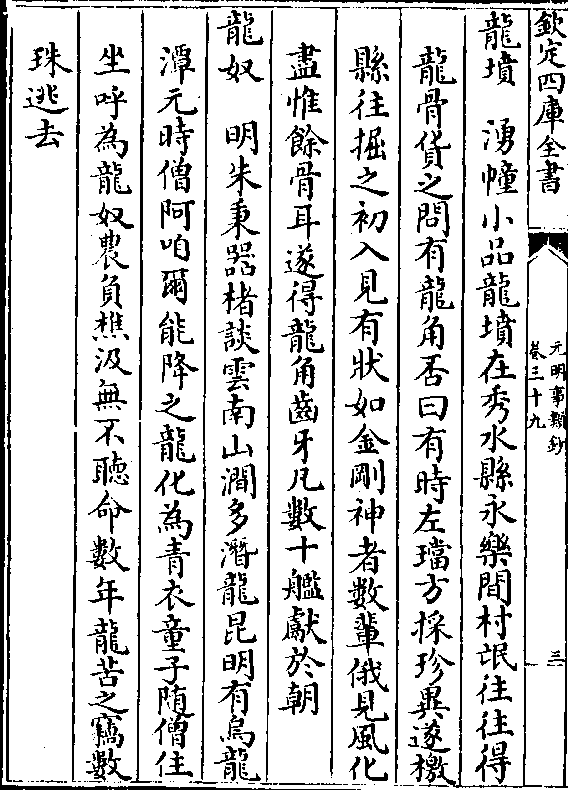 欽定四庫全書
元明事類鈔
卷三十九
三
龍墳　湧幢小品龍墳在秀水縣永樂間村氓往往得
龍骨貨之問有龍角否曰有時左璫方採珍異遂檄
縣往掘之初入見有狀如金剛神者數輩俄見風化
盡惟餘骨耳遂得龍角齒牙凡數十艦獻於朝
龍奴　明朱秉器楮談雲南山澗多潛龍昆明有烏龍
潭元時僧阿咱爾能降之龍化為青衣童子随僧住
坐呼為龍奴農負樵汲無不聽命數年龍苦之竊數
珠逃去